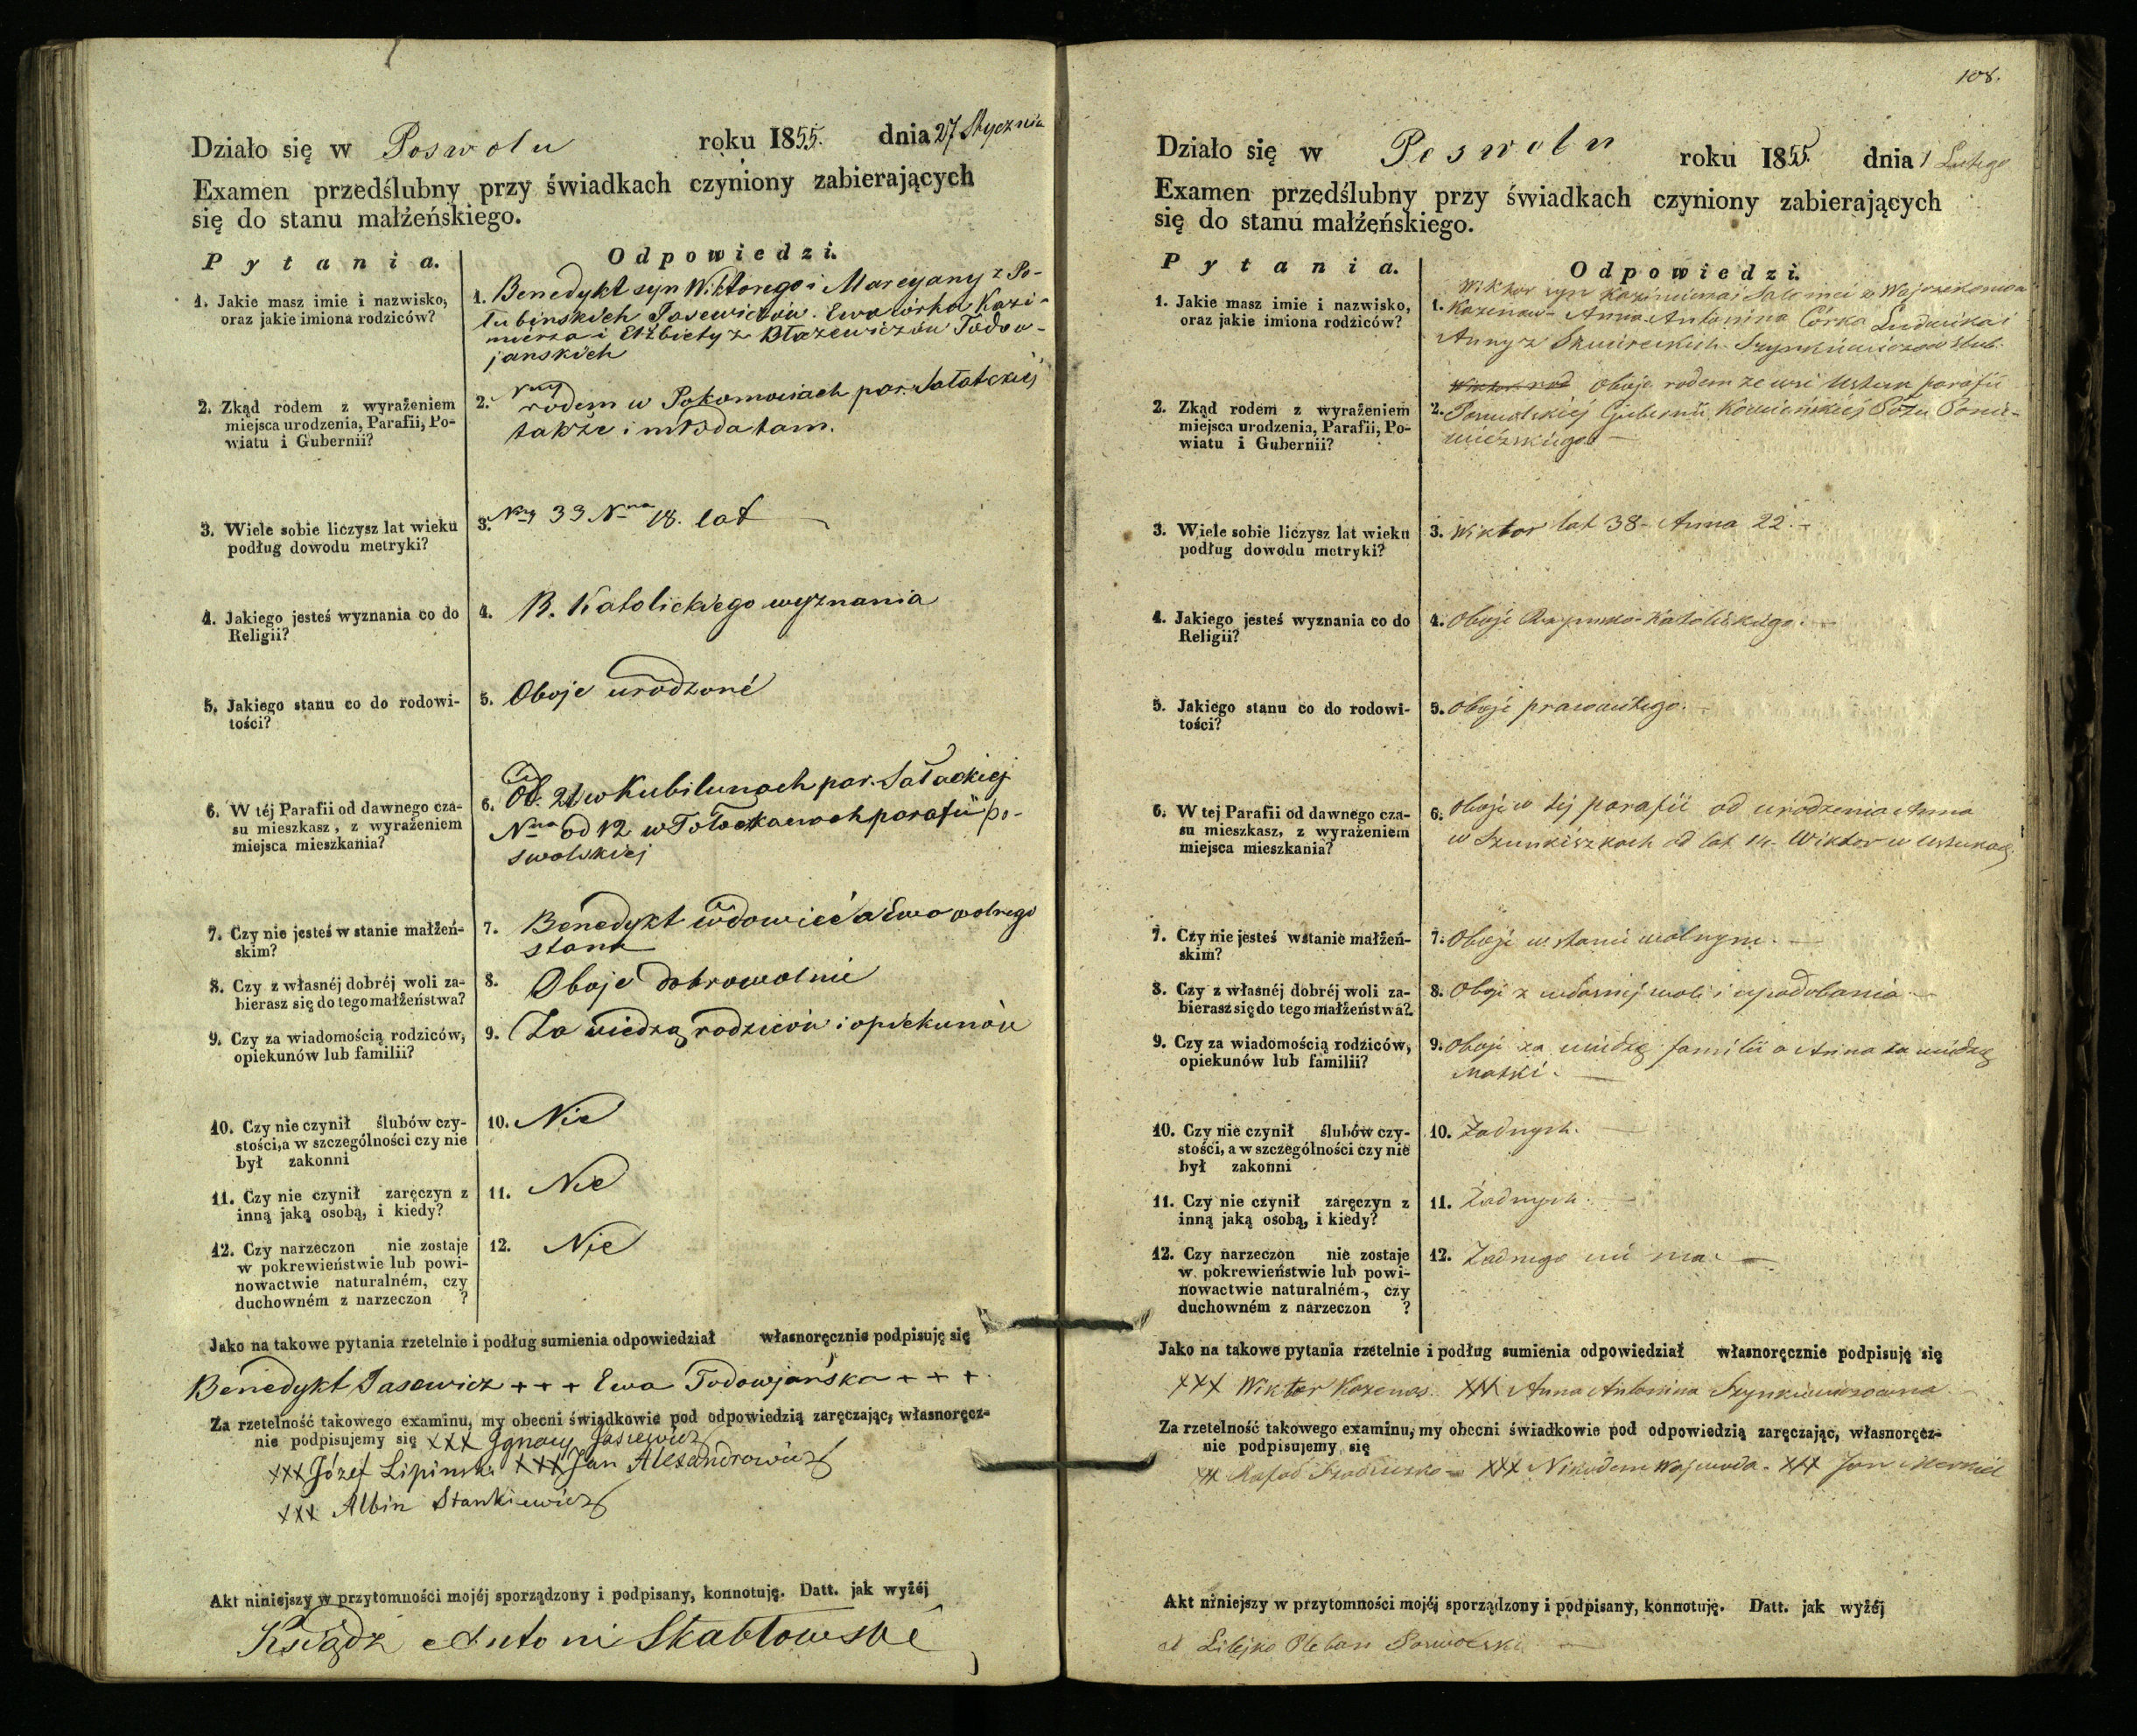 Działo się w Poswolu roku 1855. dnia 27 Stycznia
Examen przedślubny przy świadkach czyniony zabierających
się do stanu małżeńskiego.
Pytania. Odpowiedzi.
1. Jakie masz imie i nazwisko,
oraz jakie imiona rodziców?
1. Benedykt syn Wiktorego i Marcyany z Po-
lubińskich Jasewiczów. Ewa córka Kazi-
mierza i Elżbiety z Błażewiczów Todow-
jańskich
2. Zkąd rodem z wyrażeniem
miejsca urodzenia, Parafii, Po-
wiatu i Gubernii?
2. rodem w par. Sałatskiej
także i młoda tam.
3. Wiele sobie liczysz lat wieku
podług dowodu metryki?
3. Nny 33 Nna 18. lat
4. Jakiego jesteś wyznania co do
Religii?
4. R. Katolickiego wyznania
5. Jakiego stanu co do rodowi-
tości?
5. Oboje urodzoné
6. W téj Parafii od dawnego cza-
su mieszkasz, z wyrażeniem
miejsca mieszkania?
6. Od. 21 w Kubilunach par. Sałackiej
Nna od 12 w parafii po-
swolskiej
7. Czy nie jesteś w stanie małżeń-
skim?
7. Benedykt wdowiec a Ewa wolnego
stanu
8. Czy z własnéj dobréj woli za-
bierasz się do tego małżeństwa?
8. Oboje dobrowolnie
9. Czy za wiadomością rodziców,
opiekunów lub familii?
9. Za wiedzą rodziców i opiekunów
10. Czy nie czynił ślubów czy-
stości, a w szczególności czy nie
był zakonni
10. Nie
11. Czy nie czynił zaręczyn z
inną jaką osobą, i kiedy?
11. Nie
12. Czy narzeczon nie zostaje
w pokrewieństwie lub powi-
nowactwie naturalném, czy
duchowném z narzeczon ?
12. Nie
Jako na takowe pytania rzetelnie i podług sumienia odpowiedział własnoręcznie podpisuję się
Benedykt Jasewicz + + + Ewa Todowjańska + + +
Za rzetelność takowego examinu, my obecni świadkowie pod odpowiedzią zaręczając, własnoręcz-
nie podpisujemy się XXX Ignacy Jasiewicz
XXX Józef Lipinski XXX Jan Alexandrowicz
XXX Albin Stankiewicz
Akt niniejszy w przytomności mojéj sporządzony i podpisany, konnotuję. Datt. jak wyżéj
Ksiądz Antoni Skabłowski
108.
Działo się w Poswolu roku 1855. dnia 1 Lutego
Examen przedślubny przy świadkach czyniony zabierających
się do stanu małżeńskiego.
Pytania. Odpowiedzi.
1. Jakie masz imie i nazwisko,
oraz jakie imiona rodziców?
Wiktor syn Kazimierza i Salomei z
1. Anna Antonina Córka Ludwika i
Anny z
2. Zkąd rodem z wyrażeniem
miejsca urodzenia, Parafii, Po-
wiatu i Gubernii?
Oboje rodem ze wsi Ustuk parafii
2. Poswolskiej Gubernii Kowieńskiej Ponie-
wieżskiego
3. Wiele sobie liczysz lat wieku
podług dowodu metryki?
3. Wiktor lat 38 - Anna 22. -
4. Jakiego jesteś wyznania co do
Religii?
4. Oboje Rzymsko-Katolickiego. -
5. Jakiego stanu co do rodowi-
tości?
5. Oboje prawowitego. -
6. W tej Parafii od dawnego cza-
su mieszkasz, z wyrażeniem
miejsca mieszkania?
6. Oboje w tej parafii od urodzenia Anna
w od lat 14. Wiktor w Ustukach
7. Czy nie jesteś wstanie małżeń-
skim?
7. Oboje w stanie wolnym. -
8. Czy z własnéj dobréj woli za-
bierasz się do tego małżeństwa?
8. Oboje z własnej woli i upodobania -
9. Czy za wiadomością rodziców,
opiekunów lub familii?
9. Oboje za wiedzą familii a Anna za wiedzą
Matki. -
10. Czy nie czynił ślubów czy-
stości, a w szczególności czy nie
był zakonni
10. Żadnych. -
11. Czy nie czynił zaręczyn z
inną jaką osobą, i kiedy?
11. Żadnych. -
12. Czy narzeczon nie zostaje
w pokrewieństwie lub powi-
nowactwie naturalném, czy
duchowném z narzeczon ?
12. Żadnego nie ma. -
Jako na takowe pytania rzetelnie i podług sumienia odpowiedział własnoręcznie podpisuję się
XXX Wiktor Kozenas. XXX Anna Antonina Szynkiewiczowna
Za rzetelność takowego examinu, my obecni świadkowie pod odpowiedzią zaręczając, własnoręcz-
nie podpisujemy się
XXX Rafał XXX Nikodem Wojwoda. XXX Jan
Akt niniejszy w przytomności mojéj sporządzony i podpisany, konnotuję. Datt. jak wyżéj
Pleban Poswolski